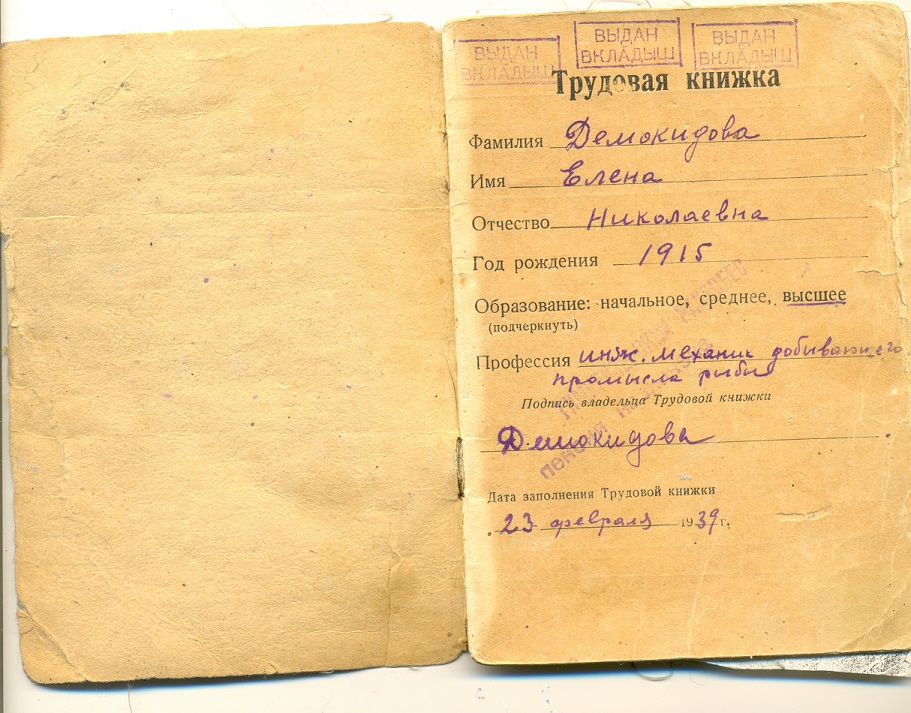 ВЫДАН ВКЛАДЫШ
ВЫДАН ВКЛАДЫШ
ВЫДАН ВКЛАДЫШ
Трудовая книжка
Фамилия Демокидова
Имя Елена
Отчество Николаевна
Год рождения 1915
Образование: начальное, среднее, высшее
(подчеркнуть)
Профессия инж. механик добывающего
промысла рыбы
Подпись владельца Трудовой книжки
Демокидова
Дата заполнения Трудовой книжки
23 февраля 1939 г.